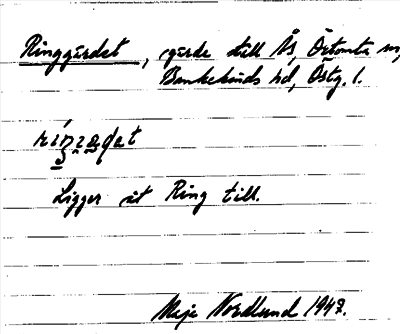 Ringgärdet, gärde till Ås, Örtomta sn,
Bankekinds hd, Östg. l.
Ligger åt Ring till.
Maja Nordlund 1947.